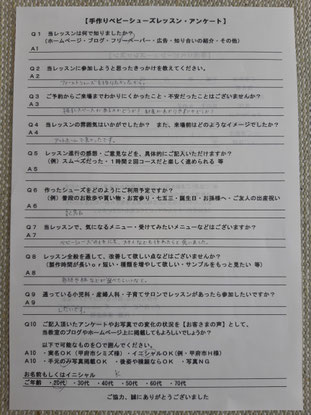 【手作りベビーシューズレッスン・アンケート】
Q1 当レッスンは何で知りましたか?
(ホームページ・ブログ・フリーペーパー・広告・知り合いの紹介・その他)
A1
Q2 当レッスンに参加しようと思ったきっかけを教えてください。
A2
Q3 ご予約からご来場までわかりにくかったこと・不安だったことはございませんか?
A3
Q4 当レッスンの雰囲気はいかがでしたか? また、来場前はどのようなイメージでしたか?
A4
Q5 レッスン進行の感想・ご意見などを、具体的にご記入いただけますか?
(例)スムーズだった・1時間2回コースだと楽しく進められる 等
A5
Q6 作ったシューズをどのようにご利用予定ですか?
(例)普段のお散歩や買い物・お宮参り・七五三・誕生日・お孫様へ・ご友人の出産祝い
A6
Q7 当レッスンで、気になるメニュー・受けてみたいメニューなどはございますか?
A7
Q8 レッスン全般を通して、改善して欲しい点などはございませんか?
(製作時間が長いor短い・種類を増やして欲しい・サンプルをもっと見たい 等)
A8
Q9 通っている小児科・産婦人科・子育てサロンでレッスンがあったら参加したいですか?
A9
Q10 ご記入頂いたアンケートやお写真での変化の状況を【お客さまの声】として、
当教室のブログやホームページ上に掲載してもよろしいでしょうか?
以下で可能なものを○で囲んでください。
A10 ・実名OK(甲府市シミズ様)・イニシャルOK(例・甲府市H様)
A10 ・手元のみ写真掲載OK ・後姿や横顔なら OK ・写真NG
お名前もしくはイニシャル K
ご年齢 ・20代 ・30代 ・40代 ・50代 ・60代 ・70代
ご協力、誠にありがとうございました